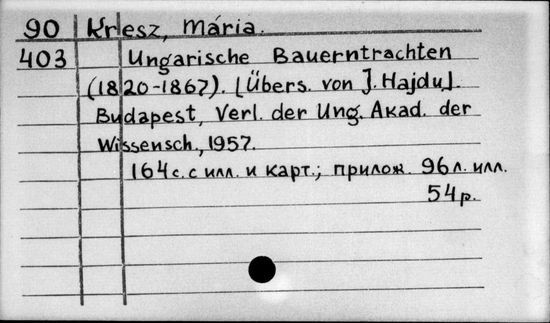 90 Kresz, Mária.
403 Ungarische Bauerntrachten
(1820-1867). [Übers. von J. Hajdu].
Budapest, Verl. der Ung. Akad. der
Wissensch., 1957.
164 с. с илл. и карт.; прилож. 96 л. илл.
54 р.